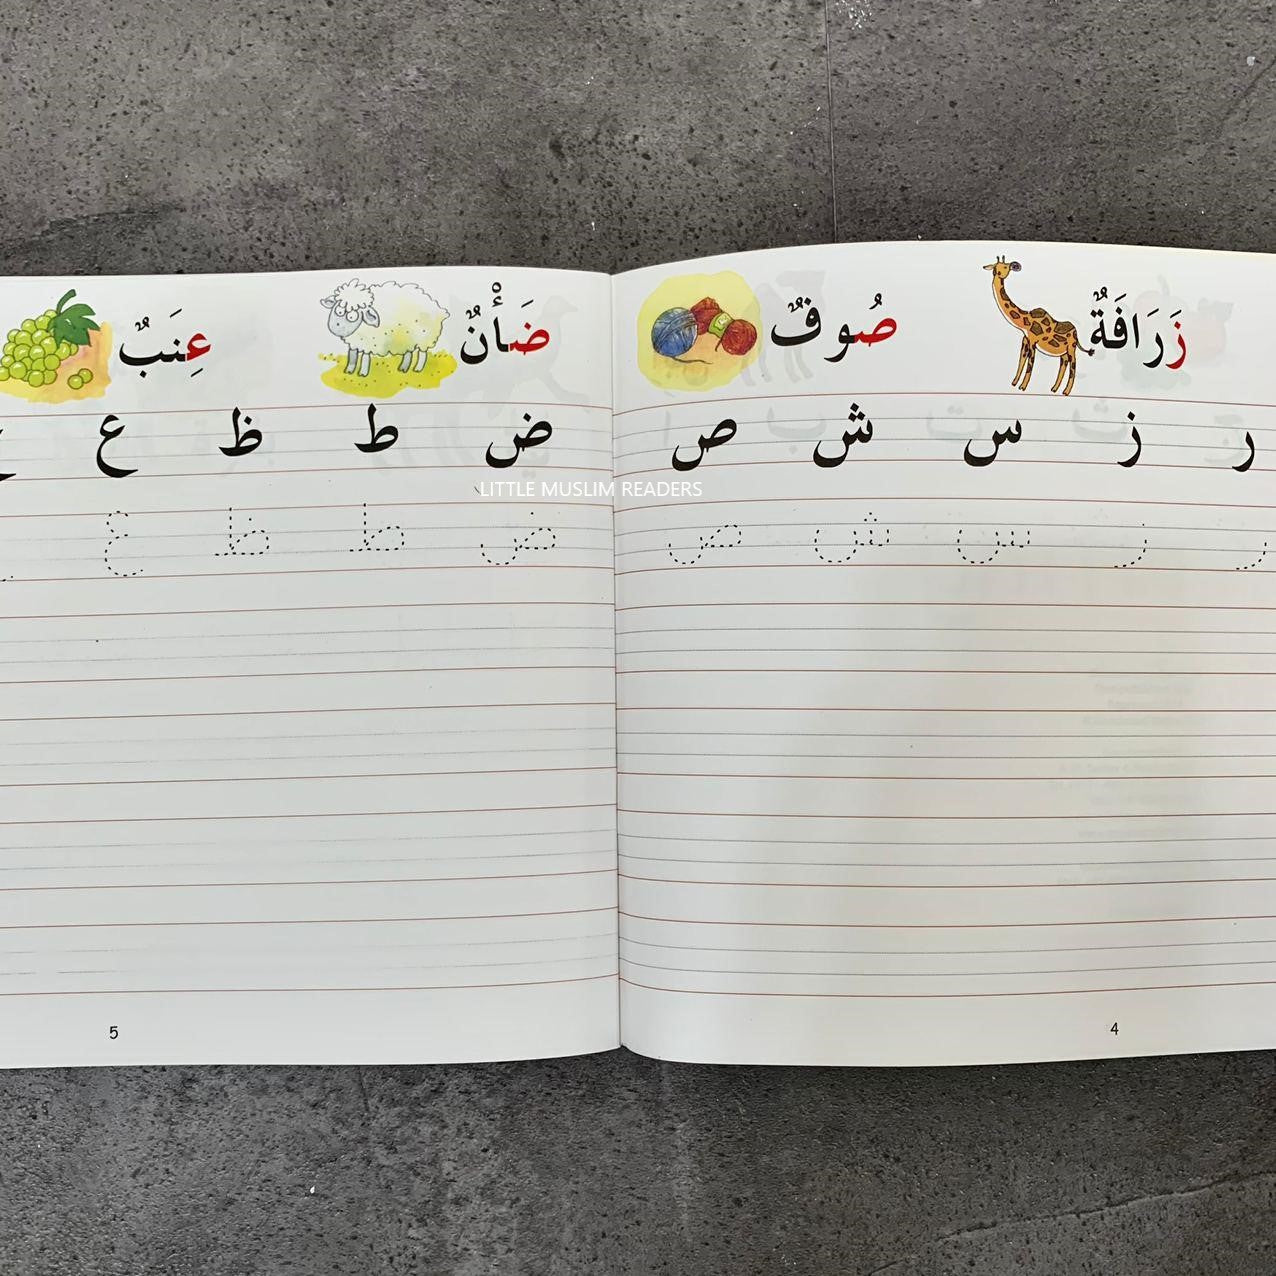 زَرَافَةٌ صُوفٌ
ر ز س ش ص
ر ز س ش ص
4
ضَأْنٌ عِنَبٌ
ض ط ظ ع
ض ط ظ ع
5
LITTLE MUSLIM READERS